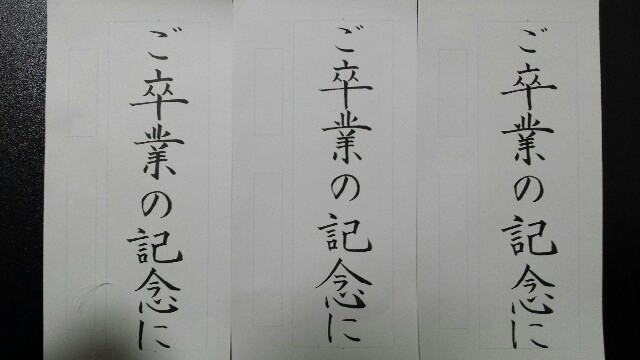 ご卒業の記念に
ご卒業の記念に
ご卒業の記念に